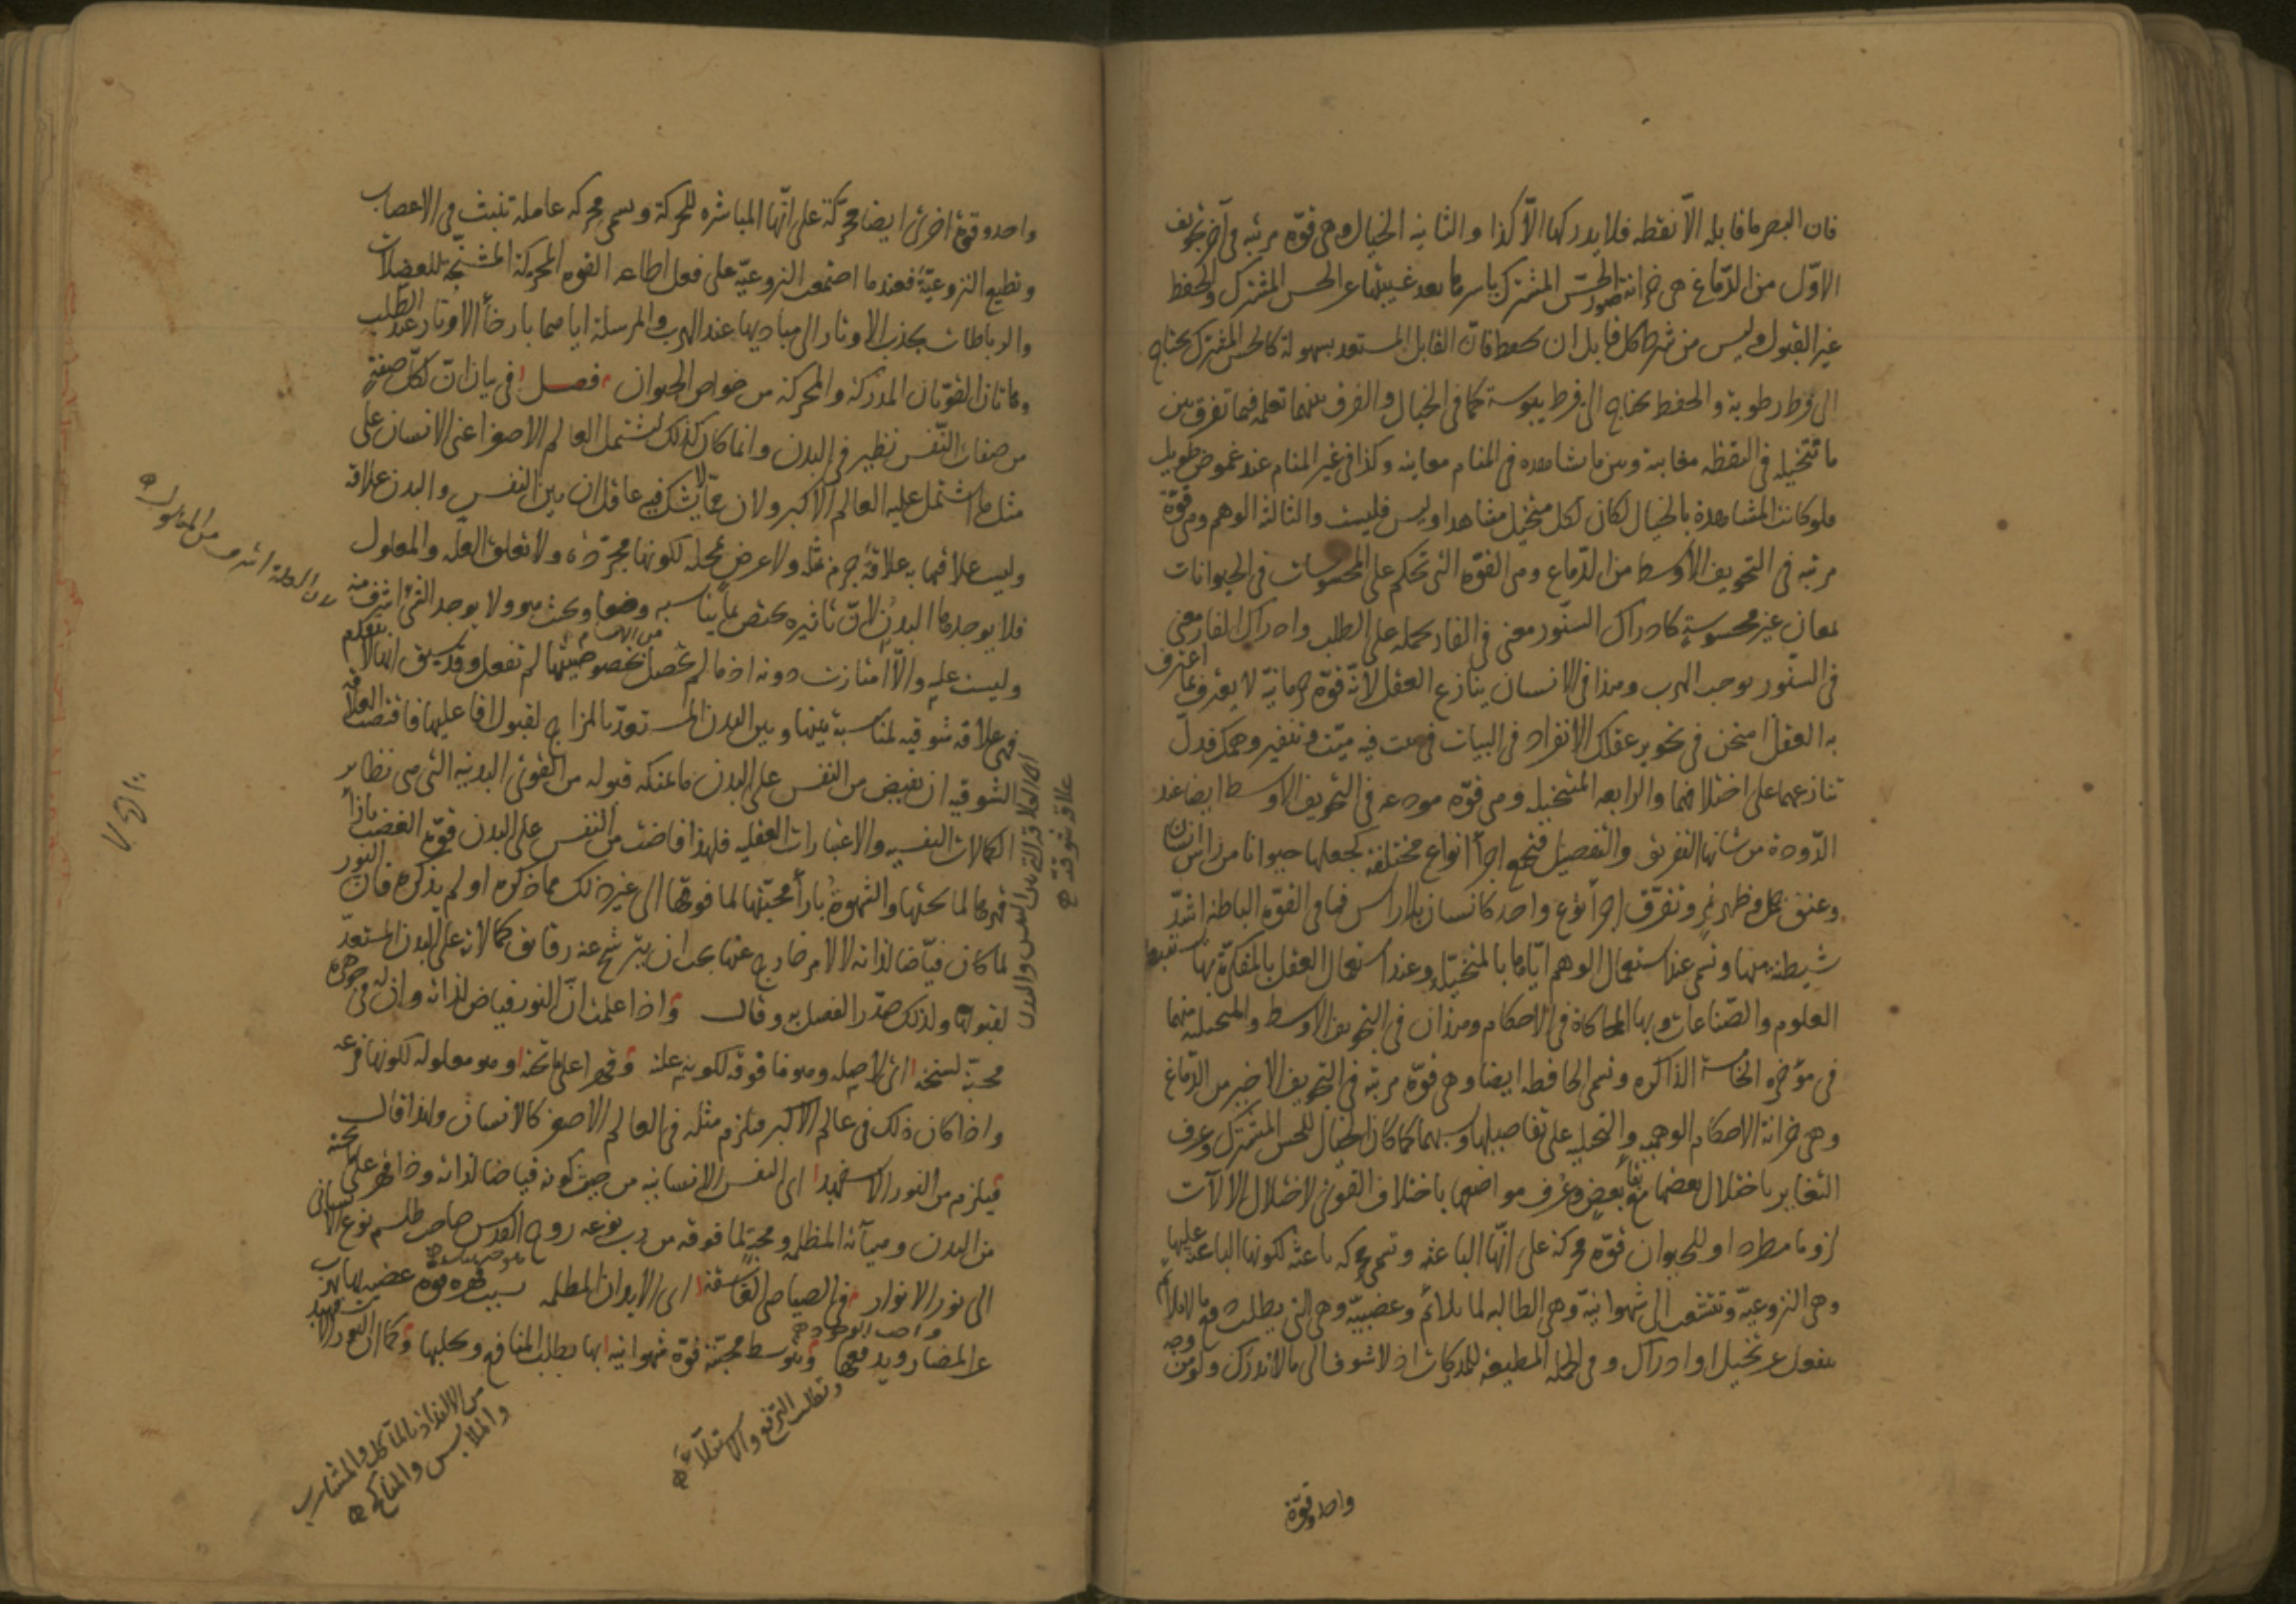 فان البصر ما قابله الّا نقطه فلا يدركها الّا كذا والثانيه الخيال وهى قوّة مرتبه فى آخر تجويف
الاوّل من الدّماغ هى خزانة صور الحسّ المشترك باسرها بعد غيبتها عن الحس المشترك والحفظ
غير القبول وليس من شرط كل قابل ان يحفظ فانّ القابل المستعد بسهولة كالحس المشترك يحتاج
الى فرط رطوبة والحفظ يحتاج الى فرط يبوسة كما فى الخيال والفرق بينهما تعلمه فيما تفرق بين
ما تتخيله فى اليقظه مغايبة وبين ما تشاهده فى المنام معاينه وكذا فى غير المنام عند غموض طويل
فلو كانت المشاهدة بالخيال لكان كل متخيل مشاهدا وليس فليست والثالثه الوهم وهى قوّة
مرتبه فى التجويف الاوسط من الدّماغ وهى القوّة التى تحكم على المحسوسات فى الحيوانات
بمعان غير محسوسةٍ كادراك السنّور معنى فى الفار يحمله على الطلب وادراك الفار معنى
فى السنّور يوجب الهرب وهذا فى الانسان ينازع العقل لانّه قوّة جرمانيّه لا يعترف بما اعترف
به العقل امتحن فى تجويز عقلك الانفراد فى البيات فى بيت فيه ميّت وتنفير وهمك فدلّ
تنازعهما على اختلافهما والرابعه المتخيله وهى قوّه مودعه فى التجويف الاوسط ايضا عند
الدّودة من شانها التفريق والتفصيل فتجمع اجزأ انواع مختلفة كجعلها حيوانا من راس انسان
وعنق جمل وظهر نمر وتفرّق اجزأ نوع واحد كانسان بلا راس فما فى القوّه الباطنه اشدّ
شيطنة منها وتسمى عند استعمال الوهم ايّاها بالمتخيّلة وعند استعمال العقل بالمفكّرة بها تستنبط
العلوم والصّناعات وبها المحاكاة فى الاحكام وهذان فى التجويف الاوسط والمتخيله منهما
فى مؤخره الخامسة الذاكره وتسمى الحافظه ايضا وهى قوّة مرتبّه فى التجويف الاخير من الدّماغ
وهى خزانة الاحكام الوهميه والتخيليه على تفاصيلها ونسبهما كما كان الخيال للحس المشترك وعرف
التغاير باختلال بعضها مع بقأ بعض وعُرف مواضعها باختلاف القوى لاختلال الالآت
لزوما مطردا وللحيوان قوّه محركة على انّها الباعثه وتسمى محركه باعثه لكونها الباعثه عليها
وهى النزوعيّة وتتشعب الى شهوانيّة وهى الطالبه لما يلائم وغضبيّة وهى التى يطلب دفع ما لا يلائم
سفعل عن تخيل او ادراك وهى الجمله المطيعه للمدركات اذ لا شوق الى ما لا ندرك ولو من وجه
واحد وقوّة
واحد وقوة اخرى ايضا محرّكة على انّها المباشره للحركة وتسمى محركه عاملة تنبث فى الاعصاب
وتطيع النزوعيّة فعندما اجتمعت النزوعيّة على فعل اطاعه القوه المحركة المشنّجة للعضلات
والرباطات بجذب الاوتار الى مباديها عند الهرب والمرسلة اياها بارخأ الاوتار عند الطلب
وهاتان القوّتان المدركة والمحركة من خواص الحيوان فصل فى بيان انّ لكلّ صفةٍ
من صفات النّفس نظير فى البدن وانما كان كذلك ليشتمل العالم الاصغر اعنى الانسان على
مثل ما اشتمل عليه العالم الاكبر ولان ممّا لا يشك فيه عاقل ان بين النفس والبدن علاقه
وليست علاقتها به علاقة جرم بمثله ولا عرض بمحله لكونها مجرّدة ولا تعلق العلّه والمعلول
فلا يوجدها البدن لانّ تاثيره يختص بما يناسبه وضعا وبحث هو ولا يوجد الشئ اشرف منه
وليست علّيه والّا امتازت دونه اذ ما لم تحصل بخصوصيتها لم تفعل وقد سبق انها لا تتقدم
فهى علاقه شوقيه لمناسبة بينها وبين البدن المستعدّ بالمزاج لقبول افاعليها فاقتضت العلاقه
الشوقيه ان تفيض من النفس على البدن ما يمكنه قبوله من القوى البدنيه التى هى نظاير
الكمالات النفسيه والاعتبارات العقليه فلهذا فاضت من النفس على البدن قوّة الغضب بازأ
قهرها لما تحتها والشهوة بازأ محبّتها لما فوقها الى غير ذلك مما ذكره او لم يذكره فان النور
لما كان فيّاضا لذاته لا لامر خارج عنها يجب ان يترشح عنه رقايق كمالاته على البدن المستعدّ
لقبولها ولذلك صدّر الفصل به وقال واذا علمت انّ النور فياض لذاته وان له فى جوهره
محبّة لسنخه اى لاصله وهو ما فوقه لكونه علته وقهرا على ما تحته وهو معلوله لكونها فرعه
واذا كان ذلك فى عالم الاكبر فيلزم مثله فى العالم الاصغر كالانسان ولهذا قال
فيلزم من النور الاسفهبد اى النفس الانسانيه من حيث كونه فياضا لذاته وذا قهر على ما تحته
من البدن وهيآته المظلمه ومحبةٍ لما فوقه من رب نوعه روح القدس صاحب طلسم نوع الانسانى
الى نور الانوار فى الصياصى الغاسقة اى الابدان المظلمه بسبب قهره قوة غضبيه بها يهرب
عن المضار ويدفعها وبتوسط محبّته قوّة شهوانيه بها يطلب المنافع ويجلبها وكما ان النور الاسفهبد
لان العلة اشرف من المعلول
اى العلاقة التى بين النفس والبدن
علاقة شوقيّة
واجب الوجود
وتطلب الترفع والاستعلآء
من الالتذاذ بالمآكل والمشارب
والملابس والمناكح